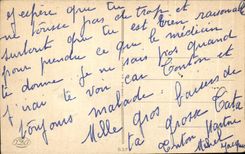 J'espère que tu
ne tousse pas de trop et
surtout que tu est bien raisonnable
pour prendre ce que le médecin
te donne. je ne sais pas quand
j'irai te voir car Tonton est
toujours malade.
Mille gros baisers de
ta grosse Tata
Tonton